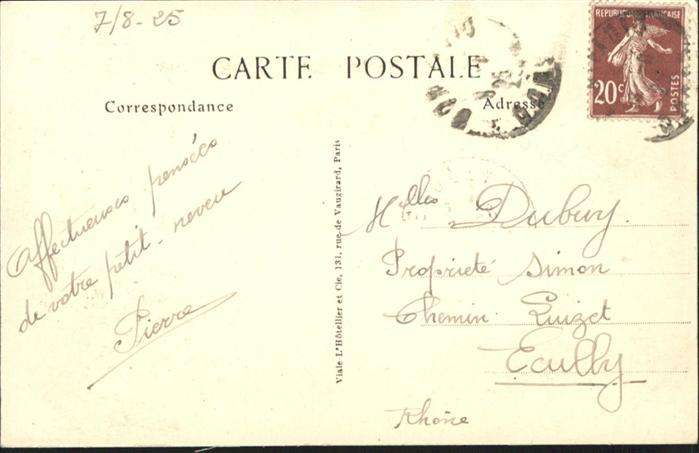 7/8-25
RÉPUBLIQUE FRANÇAISE
20c
POSTES
CARTE POSTALE
Correspondance
Adresse
Affectueuses pensées
de votre petit-neveu
Pierre
Viale-L'Hôtellier et Cie, 131, rue de Vaugirard, Paris
Mlles Dubuy.
Proprieté Simon
Chemin Luizet
Ecully
Rhône